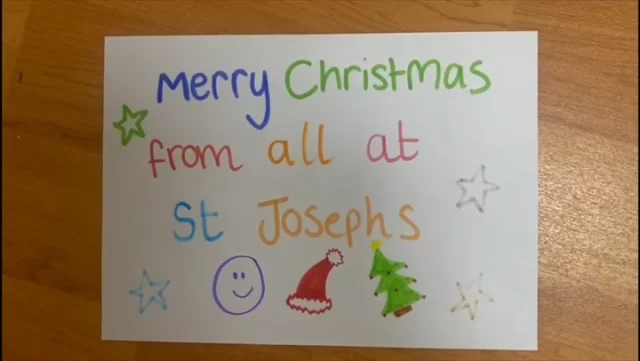 Merry Christmas
from all at
St Josephs